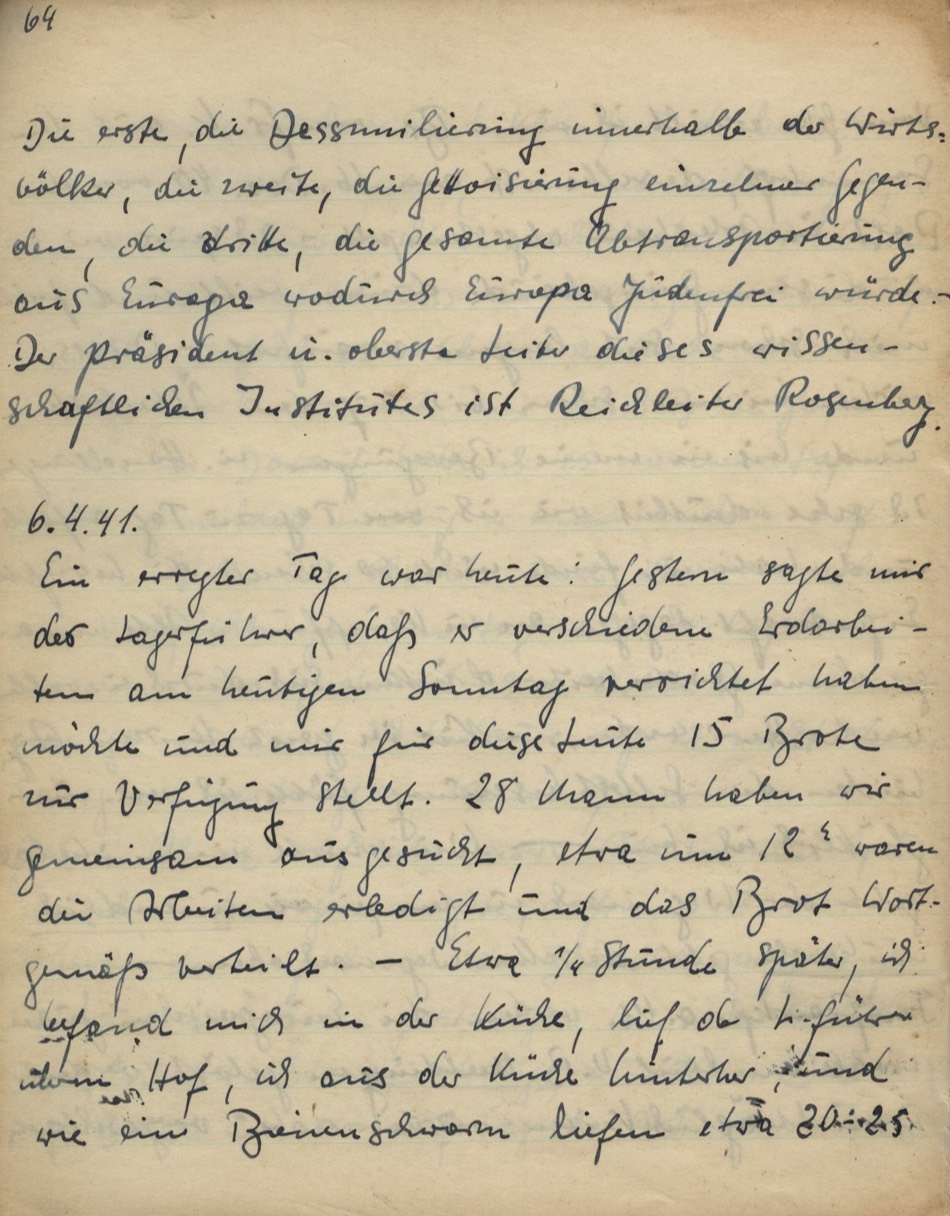 64
Die erste, die Dessimilierung innerhalb der Wirts=
völker, die zweite, die Gettoisierung einzelner Gegen-
den, die dritte, die gesamte Abtransportierung
aus Europa wodurch Europa Judenfrei würde.-
Der Präsident u. oberste Leiter dieses wissen-
schaftlichen Institutes ist Reichleiter Rosenberg.
6.4.41.
Ein erregter Tag war heute: Gestern sagte mir
der Lagerführer, daß er verschiedene Erdarbei-
ten am heutigen Sonntag verrichtet haben
möchte und mir für diese Leute 15 Brote
zur Verfügung stellt. 28 Mann haben wir
gemeinsam ausgesucht, etwa um 12 h waren
die Arbeiten erledigt und das Brot Wort-
gemäß verteilt. – Etwa 1/4 Stunde später, ich
befand mich in der Küche, lief der L.führer
übern Hof, ich aus der Küche hinterher, und
wie ein Bienenschwarm liefen etwa 20-25